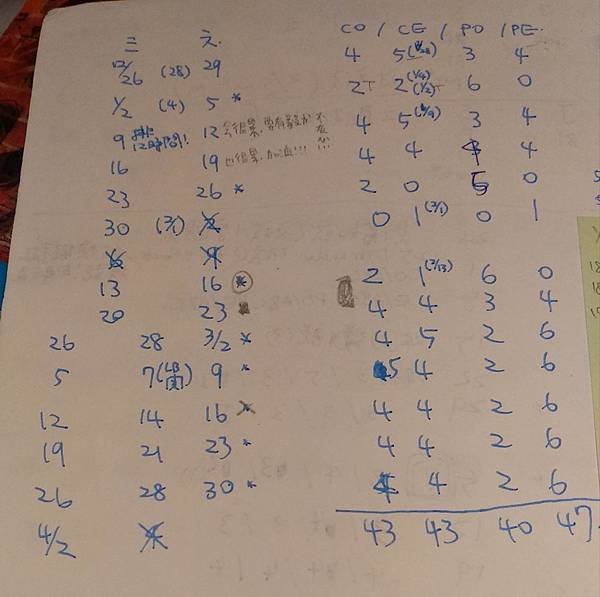 三 六 CO / CE / PO / PE.
12/26 (28) 29 4 5 3 4
1/2 (4) 5 * 2 2 (1/4) (1/2) 6 0
9 12 會很累, 要有 4 5 3 4
16 19 也很累, 加油!!! 4 4 4 4
23 26 * 2 0 5 0
30 (2/1) 0 1 (2/1) 0 1
13 16 * 2 1 (2/13) 6 0
20 23 4 4 3 4
26 28 3/2 * 4 5 2 6
5 7 9 * 5 4 2 6
12 14 16 * 4 4 2 6
19 21 23 * 4 4 2 6
26 28 30 * 4 4 2 6
4/2
43 43 40 47